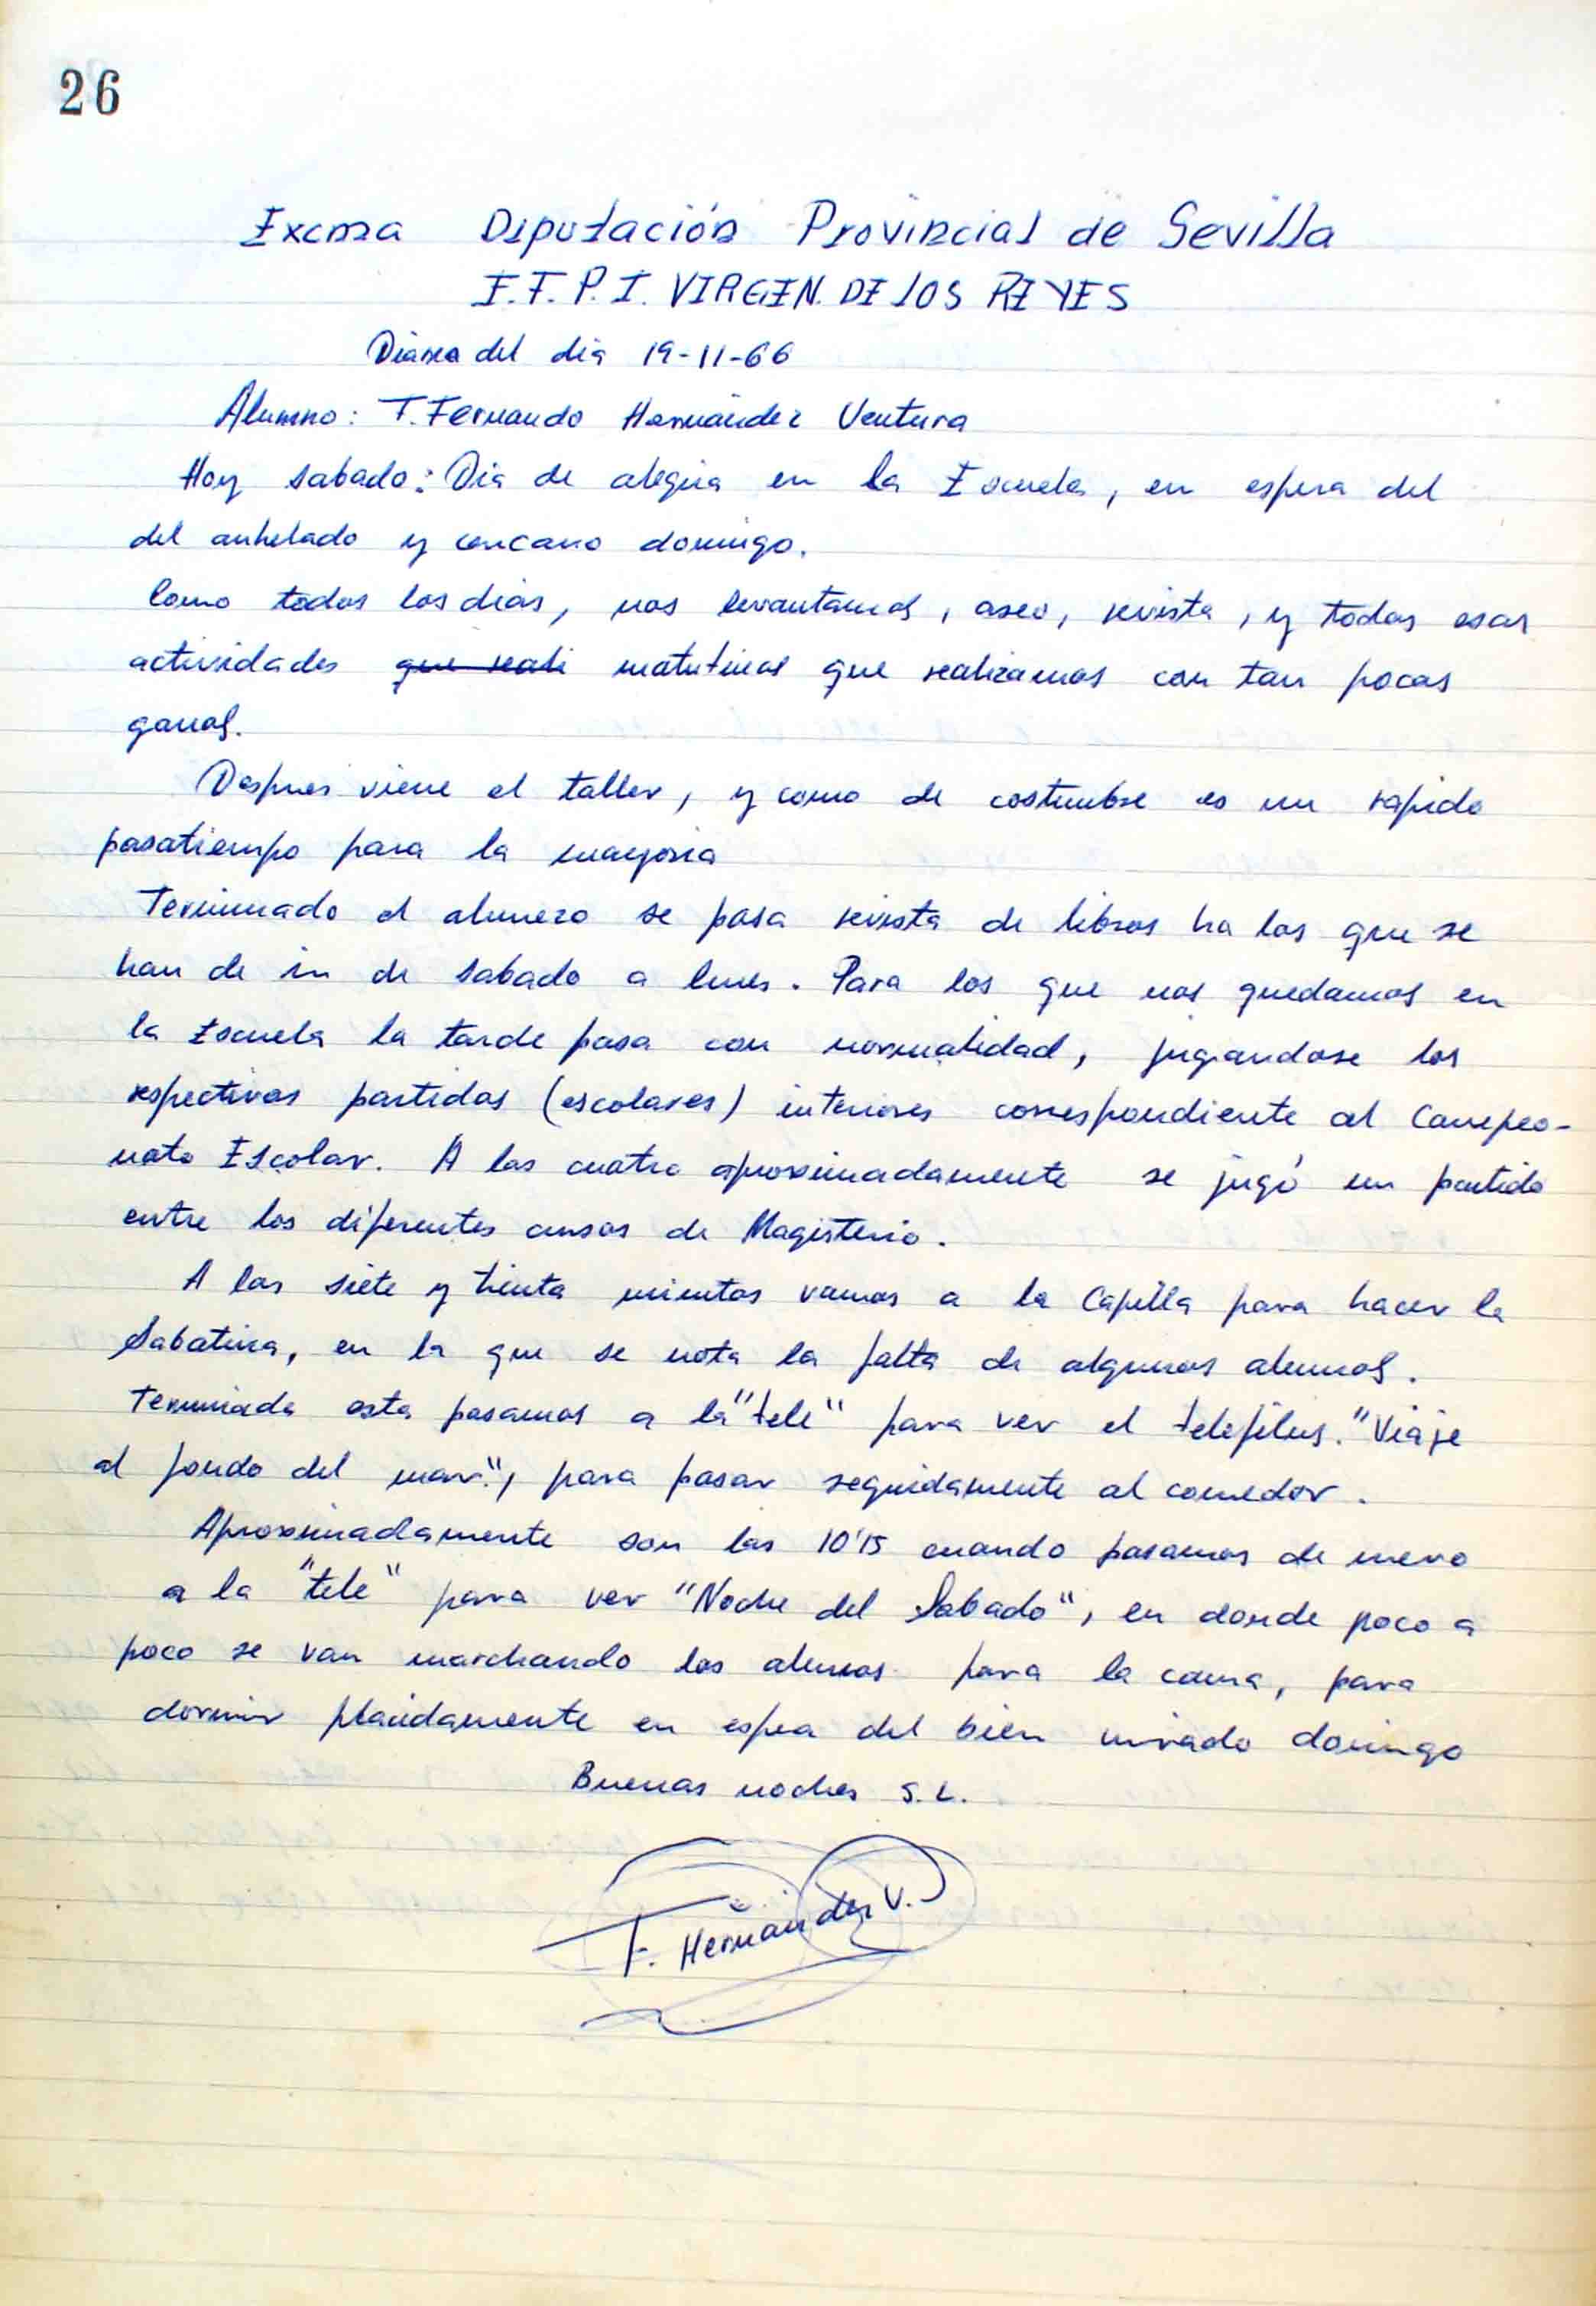 26
Excma Diputación Provincial de Sevilla
E.F.P.I. VIRGEN. DE LOS REYES
Diario del dia 19-11-66
Alumno: T. Fernando Hernández Ventura
Hoy sabado: Dia de alegria en la Escuela, en espera del
del anhelado y cercano domingo.
Como todos los dias, nos levantamos, aseo, revista, y todas esas
actividades que reali matutinas que realizamos con tan pocas
ganas.
Despues viene el taller, y como de costumbre es un rapido
pasatiempo para la mayoria
Terminado el almuerzo se pasa revista de libros ha los que se
han de ir de sabado a lunes. Para los que nos quedamos en
la Escuela la tarde pasa con normalidad, jugandose los
respectivos partidos (escolares) interiores correspondiente al Campeo-
nato Escolar. A las cuatro aproximadamente se jugó un partido
entre los diferentes cursos de Magisterio.
A las siete y treinta minutos vamos a la Capilla para hacer la
Sabatina, en la que se nota la falta de algunos alumnos.
Terminada esta pasamos a la "tele" para ver el telefilms. "Viaje
al fondo del mar", para pasar seguidamente al comedor.
Aproximadamente son las 10'15 cuando pasamos de nuevo
a la "tele" para ver "Noche del Sabado", en donde poco a
poco se van marchando los alumnos para la cama, para
dormir placidamente en espera del bien mirado domingo
Buenas noches S.L.
F. Hernández V.